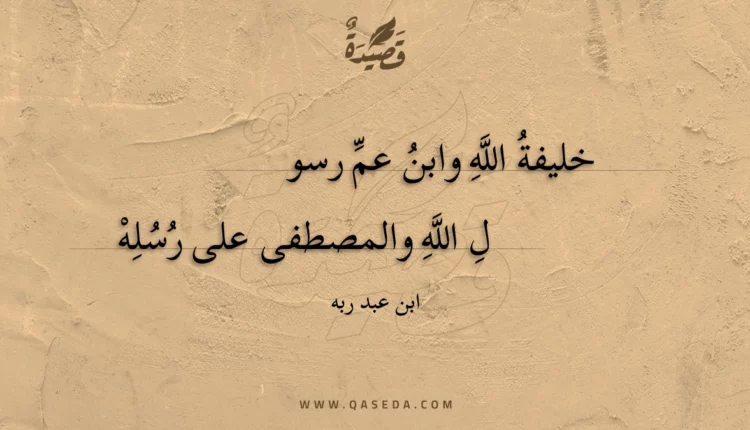 قَصِيْدَةٌ
خليفةُ اللَّهِ وابنُ عمِّ رسو
لِ اللَّهِ والمصطفى على رُسُلِهْ
ابن عبد ربه
WWW.QASEDA.COM